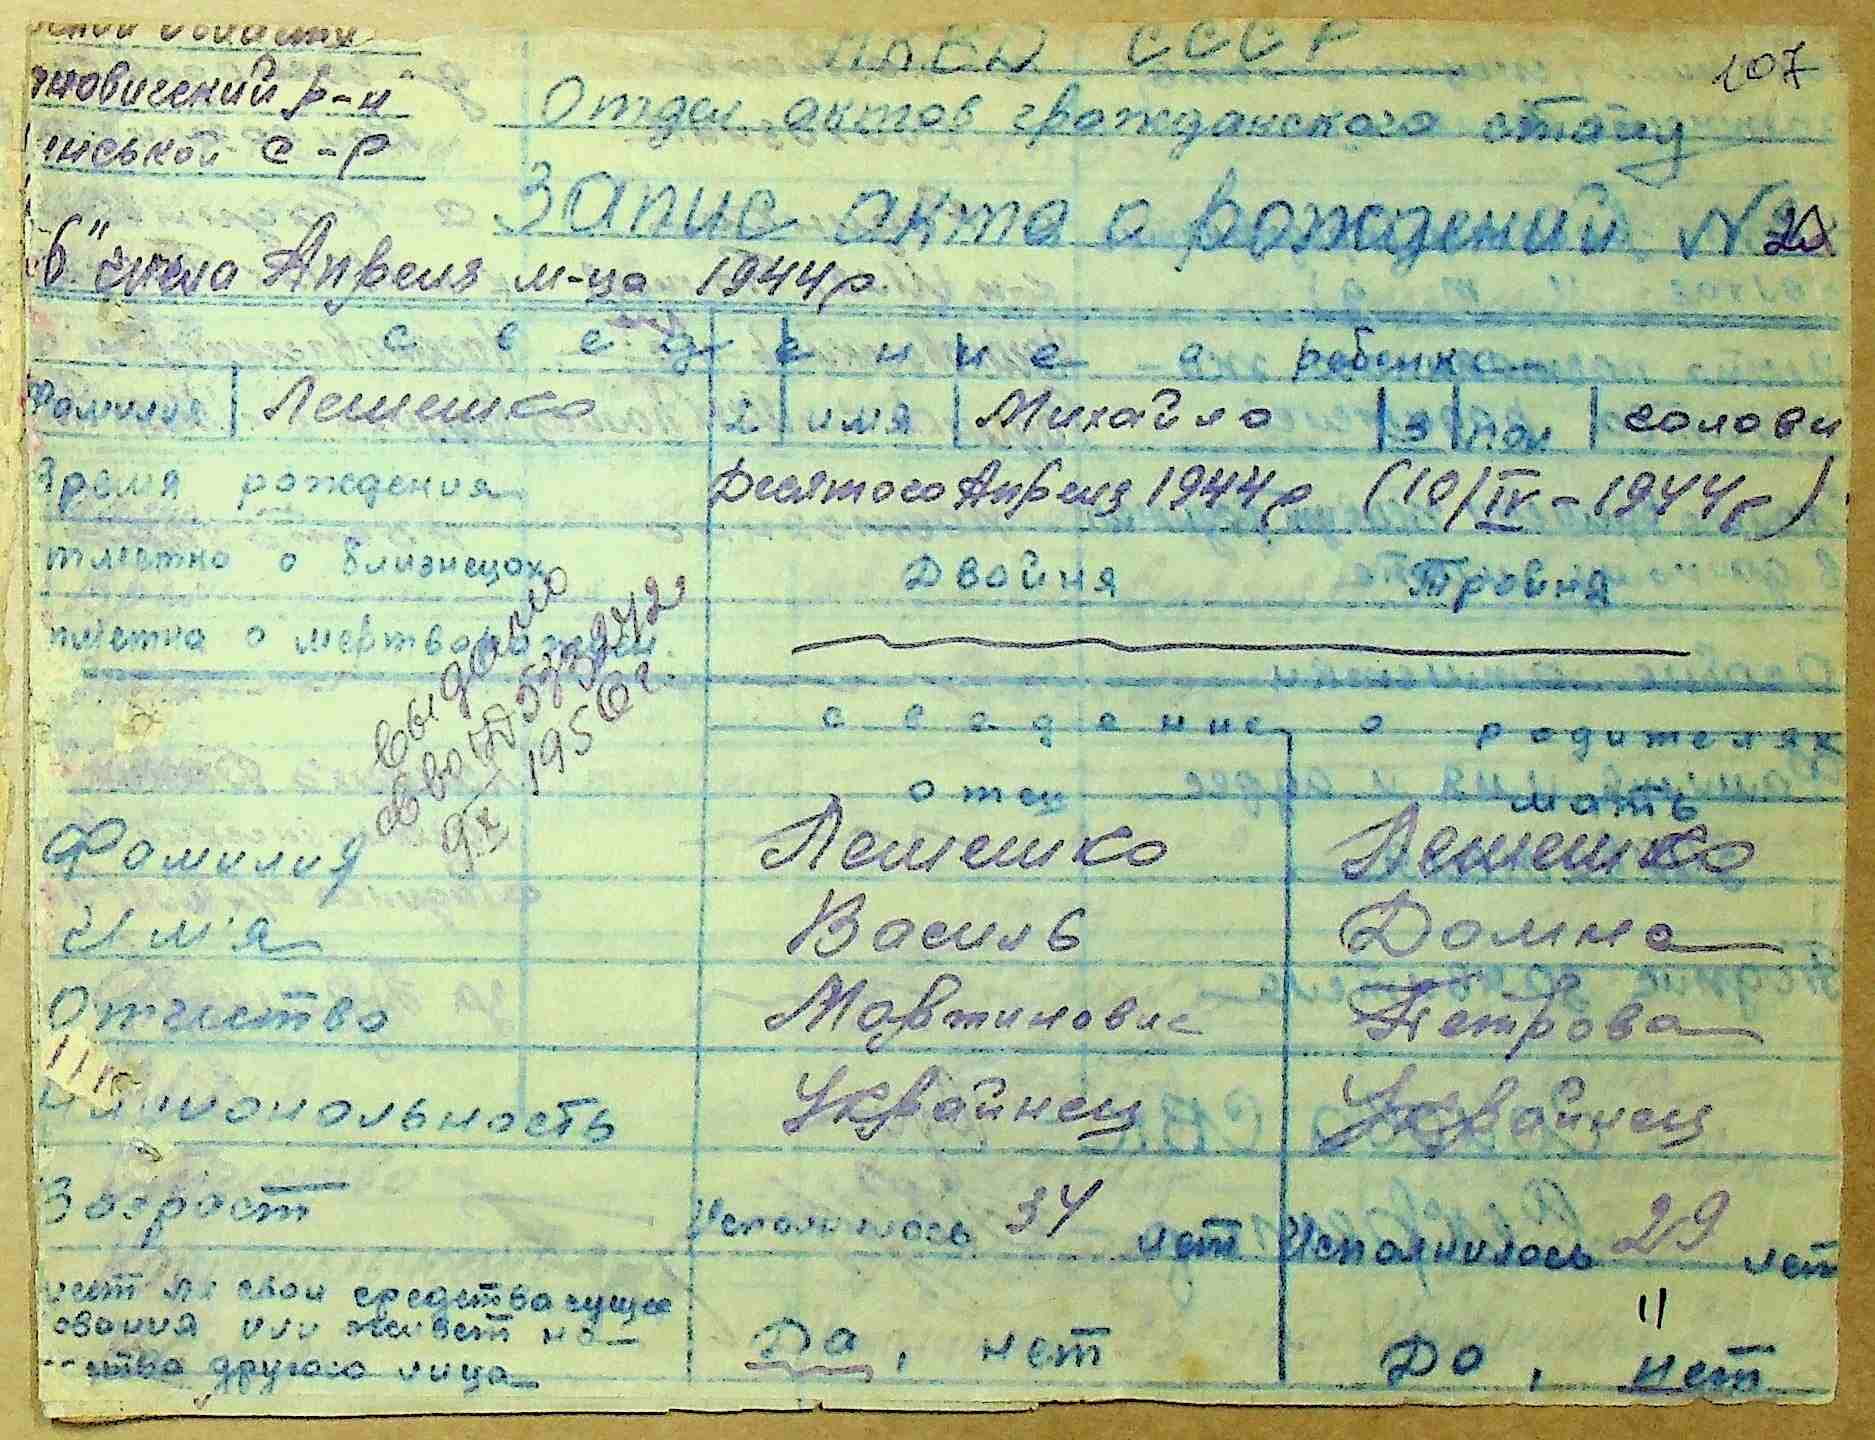 области
новический р-н
ниськой с-р
НКВД СССР
107
Отдел актов гражданского стану
Запис акта о рождений N
6" числа Апреля м-ца 1944р.
сведение о ребенке
Фамилия Лемешко 2 имя Михайло 3 пол чолови
Время рождения Десятого Апреля 1944р (10/IV-1944р)
тметка о близнецах Двойня Тройня
тметка о мертворожден.
выдано
1950г
сведение о родителях
отец мать
Фамилия Лемешко Лемешко
Им'я Василь Домна
Отчество Мартинович Петрова
11
циональность Украйнец Украйнец
Возраст Исполнилось 34 лет Исполнилось 29 лет
меет ли свои средства сущес
ования или живет на
ства другого лица Да, нет До, нет